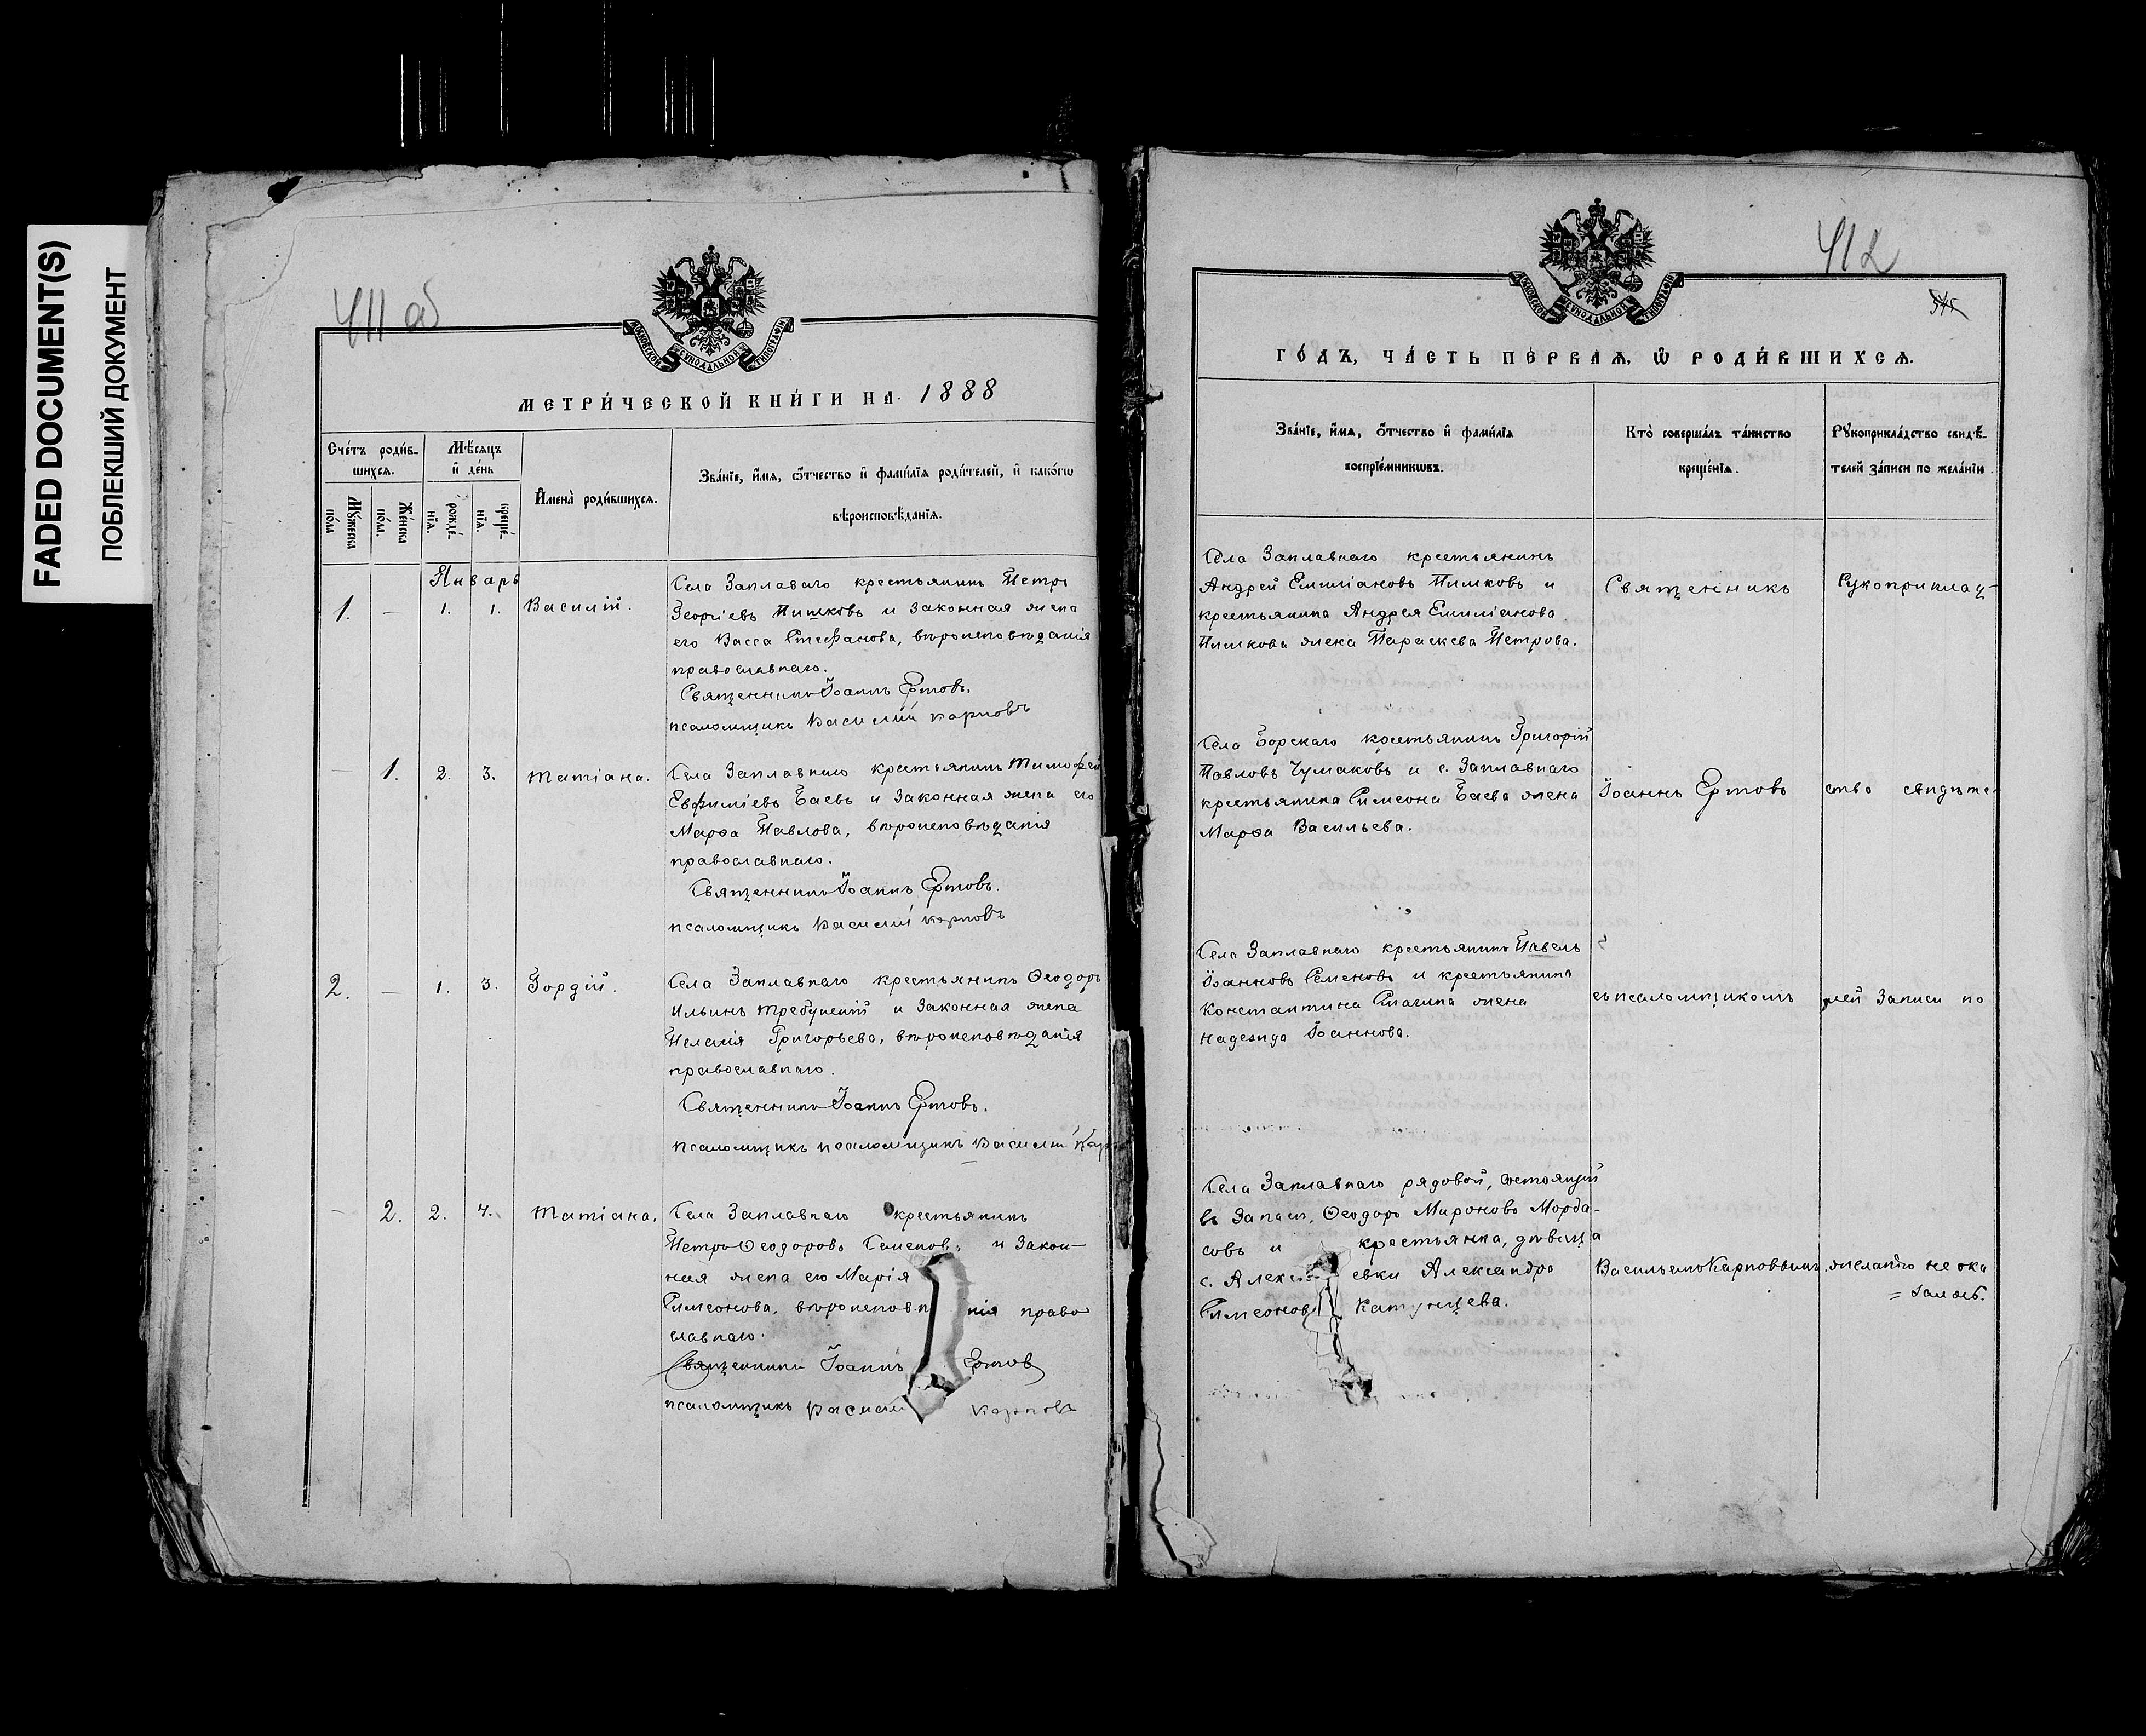 FADED DOCUMENT(S)
ПОБЛЕКШИЙ ДОКУМЕНТ
411 об
МОСКОВСКОЙ СѴНОДАЛЬНОЙ ТИПОГРАФІИ
МЕТРИ́ЧЕСКОЙ КНИ́ГИ НА 1888
Сче́тъ роди́в-
шихся.
Мѣ́сяцъ
и҆ де́нь
Мꙋ́жеска
по́ла
Же́нска
по́ла.
рожде́-
нїѧ.
креще́-
нїѧ.
И҆мена̀ роди́вшихсѧ.
Зва́нїе, и҆́мѧ, ѻ҆́тчество и҆ фами́лїѧ роди́телей, и҆ како́гѡ
вѣроисповѣ́данїѧ.
Январь
1. — 1. 1. Василій.
Села Заплаваго крестьянинъ Петръ
Георгіевъ Пишковъ и законная жена
его Васса Стефанова, вѣроисповѣданія
православнаго.
Священникъ Іоаннъ Ертовъ.
псаломщикъ Василій Карповъ
— 1. 2. 3. Татіана.
Села Заплавнаго крестьянинъ Тимофей
Евфиміевъ Баевъ и законная жена его
Марѳа Павлова, вѣроисповѣданія
православнаго.
Священникъ Іоаннъ Ертовъ.
псаломщикъ Василій Карповъ
2. — 1. 3. Гордій.
Села Заплавнаго крестьянинъ Ѳеодоръ
Ильинъ и законная жена
Пелагія Григорьева, вѣроисповѣданія
православнаго.
Священникъ Іоаннъ Ертовъ.
псаломщикъ псаломщикъ Василій Кар
— 2. 2. 4. Татіана.
Села Заплавнаго крестьянинъ
Петръ Ѳеодоровъ Семенов. и закон—
ная жена его Марія
Симеонова, вѣроисповѣ нія право
славнаго.
Священникъ Іоаннъ Ертов
псаломщикъ Васили Карповъ
412
МОСКОВСКОЙ СѴНОДАЛЬНОЙ ТИПОГРАФІИ
ГО́ДЪ, ЧА́СТЬ ПЕ́РВАѦ, Ѡ҆ РОДИ́ВШИХСѦ.
Зва́нїе, и҆́мѧ, ѻ҆́тчество и҆ фами́лїѧ
воспрїе́мникѡвъ.
Кто̀ соверша́лъ та́инство
креще́нїѧ.
Рꙋкоприкла́дство свидѣ́-
телей за́писи по жела́нїю.
Села Заплавнаго крестьянинъ
Андрей Емиліановъ Пишковъ и
крестьянина Андрея Емиліанова
Пишкова жена Параскева Петрова.
Священникъ
Рукоприклад-
Села Борскаго крестьянинъ Григорій
Павловъ Чумаковъ и с. Заплавнаго
крестьянина Симеона Баева жена
Марѳа Васильева.
Іоаннъ Ертовъ
ство свидѣте-
Села Заплавнаго крестьянинъ Павелъ
Іоанновъ Семеновъ и крестьянина
Константина жена
Надежда Іоаннова.
съ псаломщикомъ
лей записи по
Села Заплавнаго рядовой, состоящій
въ запасѣ, Ѳеодоръ Мироновъ Морда-
совъ и крестьянка, дѣвица
с. Алекс евки Александра
Симеонов Катунцева.
Васильемъ Карповымъ.
желанію не ока
= залось.